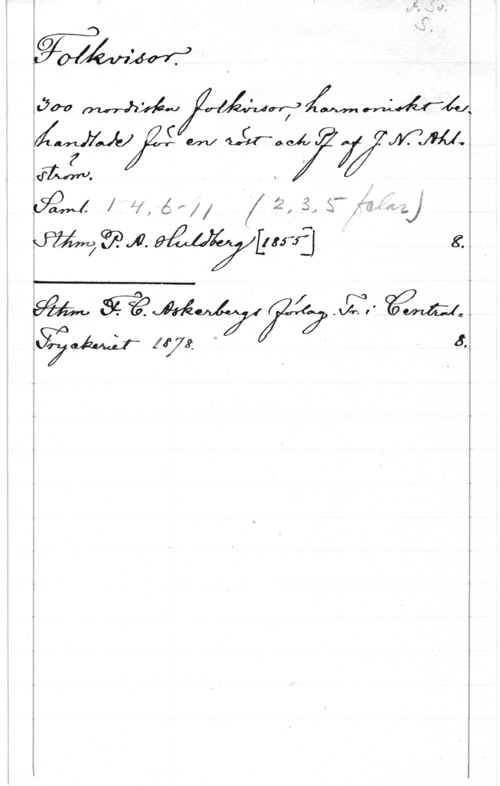 F. Sv.
S.
Folkvisor.
300 nordiska folkvisor, harmoniskt be-
handlade för en röst och Pf. af J. N. Ahl-
ström.
Saml. 1, 4, 6-11 (2, 3, 5 felas)
Sthm, P. A. Huldberg [1855] 8.
Sthm F. C. Askerbergs förlag. Tr. i Central-
Tryckeriet 1878. 8.